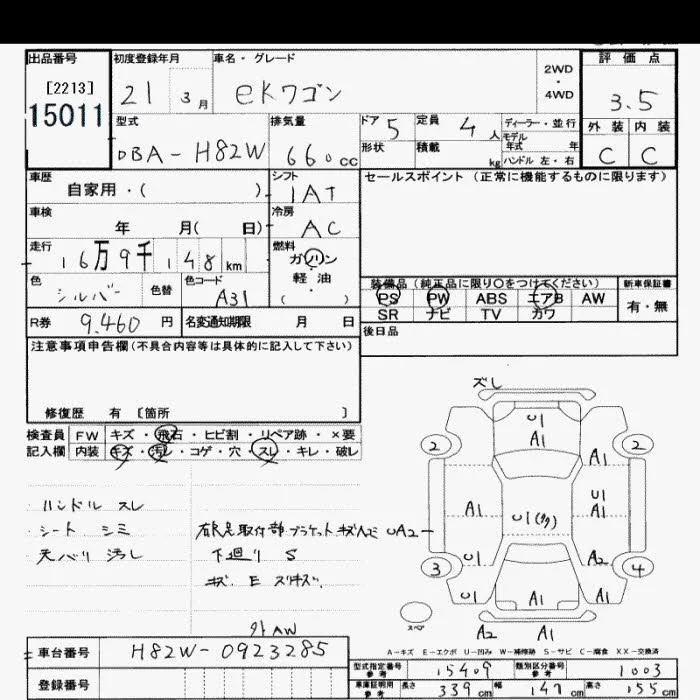 出品番号 初度登録年月 車名・グレード 評価点
[2213] 21 3月 eKワゴン 2WD・4WD 3.5
15011
型式 排気量 ドア 5 定員 4人 ディーラー・並行 外装 内装
DBA-H82W 660cc 形状 積載 kg モデル年式 年 C C
ハンドル 左・右
車歴 シフト セールスポイント (正常に機能するものに限ります)
自家用・( ) 1AT
車検 冷房
年 月( 日) AC
走行 燃料
16万9千148km ガソリン
軽油
( )
色 シルバー 色替 色コード A31
装備品(純正品に限り〇をつけてください) 新車保証書
PS PW ABS エアB AW 有・無
SR ナビ TV カワ
R券 9.460円 名変通知期限 月 日 後日品
注意事項申告欄(不具合内容等は具体的に記入して下さい)
修復歴 有 [箇所 ]
検査員 FW キズ・飛石・ヒビ割・リペア跡・×要
記入欄 内装 キズ・汚レ・コゲ・穴・スレ・キレ・破レ
ハンドル スレ
シート シミ
天バリ 汚レ
ブラケット UA2
下廻り S
キズ E
外AW
ズレ
U1
A1
2 2
A1
A1 U1
A1
U1(多)
U1 A2
3 4
U1 A1 A1
スペア
A2 A1
A-キズ E-エクボ U-凹み W-補修跡 S-サビ C-腐食 XX-交換済
車台番号 H82W-0923285
登録番号
型式指定番号 参考 15409 類別区分番号 参考 1003
車庫証明用 参考 長さ 339cm 幅 147cm 高さ 155cm